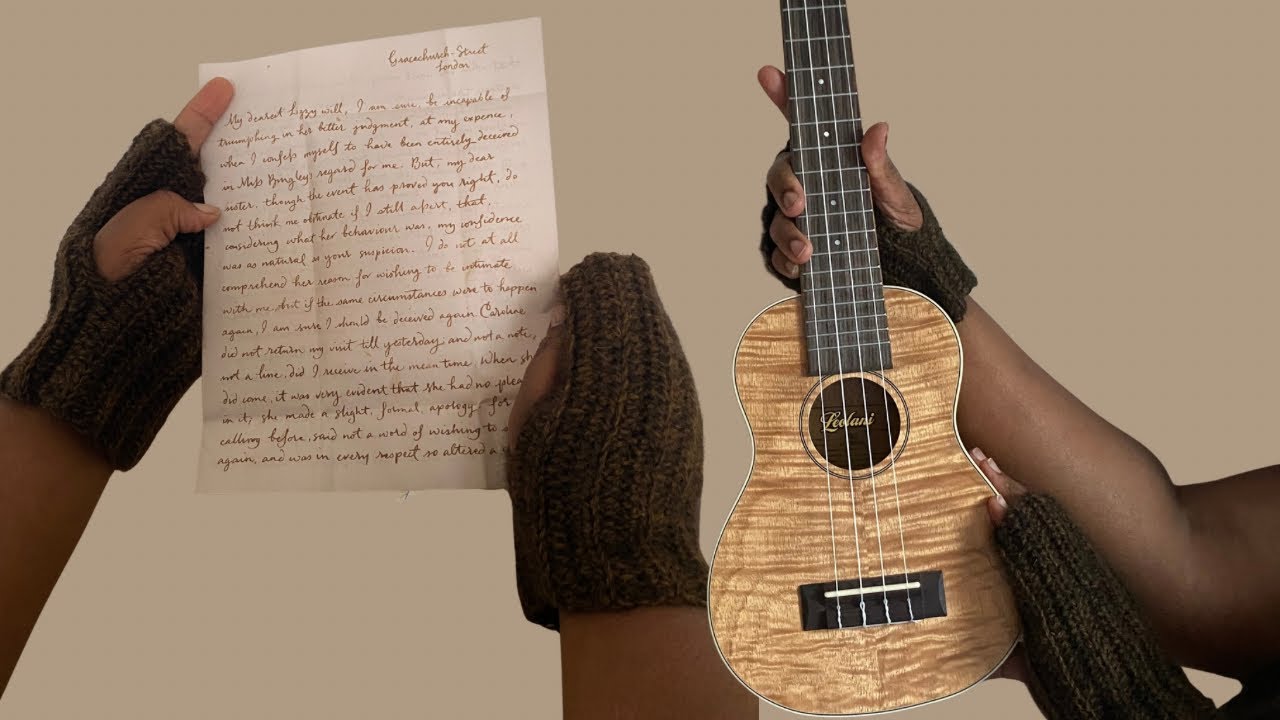 Gracechurch-Street
London
My dearest Lizzy will, I am sure, be incapable of
triumphing in her better judgment, at my expence,
when I confess myself to have been entirely deceived
in Miss Bingley's regard for me. But, my dear
sister, though the event has proved you right, do
not think me obstinate if I still assert, that,
considering what her behaviour was, my confidence
was as natural as your suspicion. I do not at all
comprehend her reason for wishing to be intimate
with me, but if the same circumstances were to happen
again, I am sure I should be deceived again. Caroline
did not return my visit till yesterday and not a note,
not a line, did I receive in the mean time. When sh
did come, it was very evident that she had no plea
in it; she made a slight, formal, apology for
calling before, said not a word of wishing to s
again, and was in every respect so altered a
Leolani